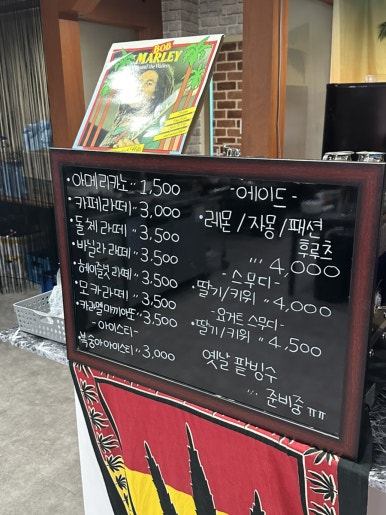 BOB
MARLEY
and the Wailers
·아메리카노·· 1,500
·카페라떼·· 3,000
·돌체라떼·· 3,500
·바닐라라떼·· 3,500
·헤이즐넛라떼·· 3,500
·모카라떼·· 3,500
·카라멜마끼아또·· 3,500
-아이스티-
·복숭아아이스티·· 3,000
-에이드-
·레몬/자몽/패션
후루츠
··· 4,000
-스무디-
·딸기/키위·· 4,000
-요거트 스무디-
·딸기/키위·· 4,500
옛날 팥빙수
··· 준비중 ㅠㅠ